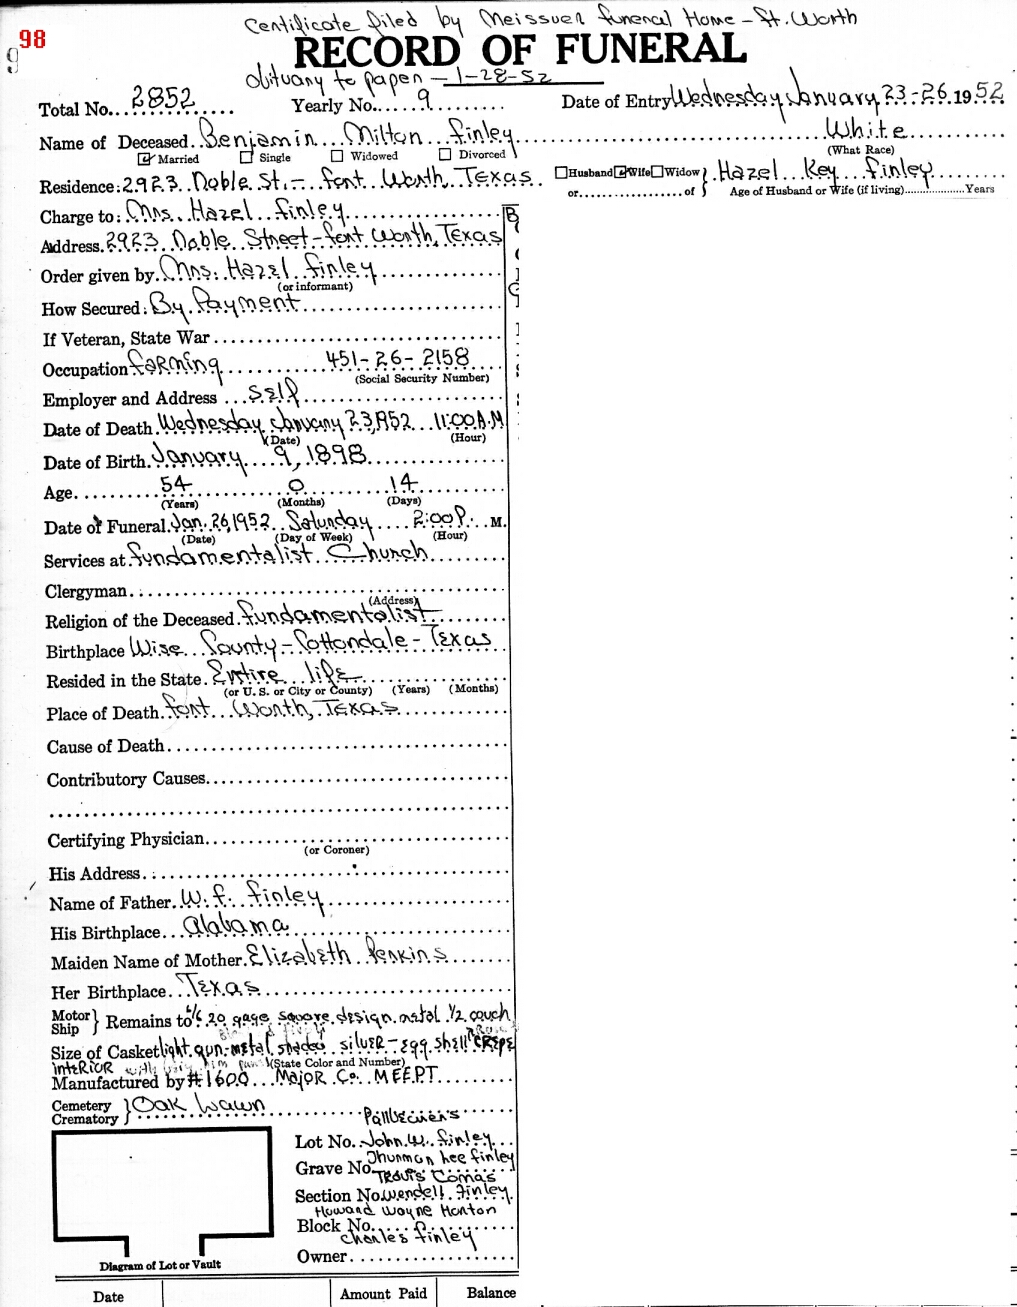 Certificate filed by Meissner Funeral Home - Ft. Worth
98
9
RECORD OF FUNERAL
obituary to paper - 1-28-52
Total No. 2852 Yearly No. 9 Date of Entry Wednesday January 23-26 1952
Name of Deceased Benjamin Milton Finley White
(What Race)
☑ Married ☐ Single ☐ Widowed ☐ Divorced
Residence: 2923 Noble St. - Fort Worth, Texas ☐ Husband ☑ Wife ☐ Widow } Hazel Key Finley
or of Age of Husband or Wife (if living) Years
Charge to: Mrs. Hazel Finley
Address. 2923 Noble Street - Fort Worth, Texas
Order given by. Mrs. Hazel Finley
(or informant)
How Secured: By Payment
If Veteran, State War
Occupation Farming 451-26-2158
(Social Security Number)
Employer and Address Self
Date of Death. Wednesday January 23, 1952 11:00 A.M
(Date) (Hour)
Date of Birth. January 9, 1898
Age 54 0 14
(Years) (Months) (Days)
Date of Funeral. Jan. 26, 1952 Saturday 2:00 P. M.
(Date) (Day of Week) (Hour)
Services at Fundamentalist Church
Clergyman
(Address)
Religion of the Deceased. Fundamentalist
Birthplace Wise County - Cottondale - Texas
Resided in the State. Entire life
(or U. S. or City or County) (Years) (Months)
Place of Death. Fort Worth, Texas
Cause of Death
Contributory Causes
Certifying Physician
(or Coroner)
His Address
Name of Father. W. F. Finley
His Birthplace Alabama
Maiden Name of Mother. Elizabeth Perkins
Her Birthplace Texas
Motor Ship } Remains to 6/6 20 gage square design metal 1/2 couch
Size of Casket light gun-metal shaded silver - egg shell crepe
interior (State Color and Number)
Manufactured by #1600 Major Co. M.E.E.P.T.
Cemetery Crematory } Oak Lawn
Pallbearers
Lot No. John W. Finley
Grave No. Thurman Lee Finley
Travis Comas
Section No. Wendell Finley
Howard Wayne Horton
Block No.
Charles Finley
Owner
Diagram of Lot or Vault
Date Amount Paid Balance